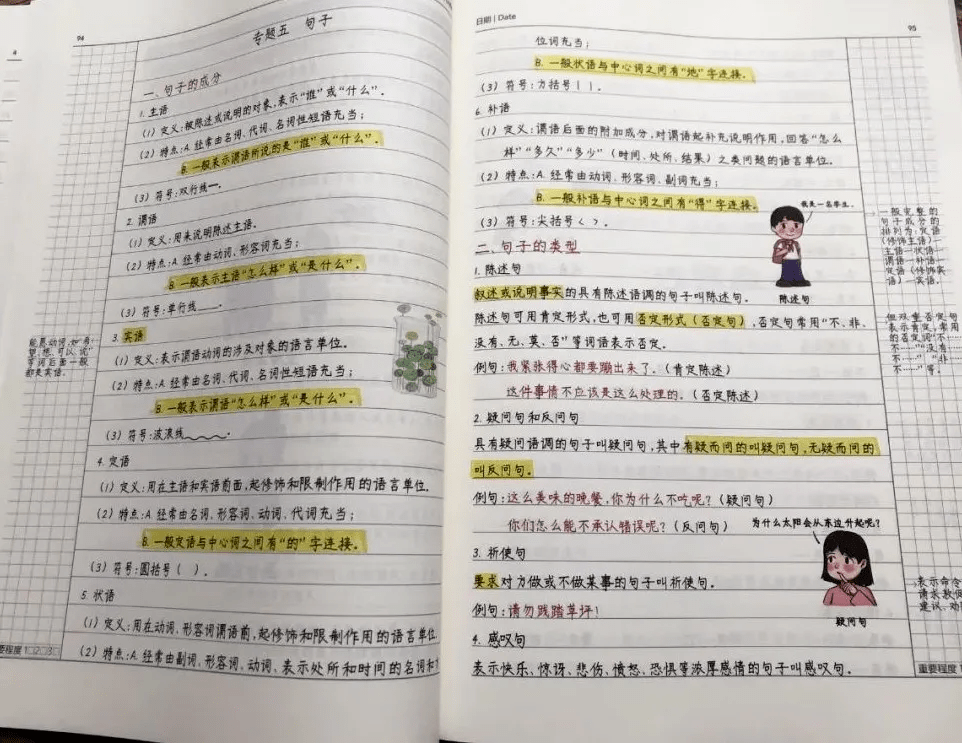 94
专题五 句子
一、句子的成分
1. 主语
(1) 定义:被陈述或说明的对象,表示“谁”或“什么”。
(2) 特点:A. 经常由名词、代词、名词性短语充当;
B. 一般表示谓语所说的是“谁”或“什么”。
(3) 符号:双行线
2. 谓语
(1) 定义:用来说明陈述主语。
(2) 特点:A. 经常由动词、形容词充当;
B. 一般表示主语“怎么样”或“是什么”。
(3) 符号:单行线
3. 宾语
(1) 定义:表示谓语动词的涉及对象的语言单位。
(2) 特点:A. 经常由名词、代词、名词性短语充当;
B. 一般表示谓语“怎么样”或“是什么”。
(3) 符号:波浪线
能愿动词,如“希
望、想、可以、说”
等词后面一般
都是宾语。
4. 定语
(1) 定义:用在主语和宾语前面,起修饰和限制作用的语言单位.
(2) 特点:A. 经常由名词、形容词、动词、代词充当;
B. 一般定语与中心词之间有“的”字连接。
(3) 符号:圆括号( )。
5. 状语
(1) 定义:用在动词、形容词谓语前,起修饰和限制作用的语言单位
(2) 特点:A. 经常由副词、形容词、动词、表示处所和时间的名词和
要程度 1□2□3□
日期 | Date
95
位词充当;
B. 一般状语与中心词之间有“地”字连接.
(3) 符号:方括号[ ].
6. 补语
(1) 定义:谓语后面的附加成分,对谓语起补充说明作用,回答“怎么
样”“多久”“多少”(时间、处所、结果)之类问题的语言单位.
(2) 特点:A. 经常由动词、形容词、副词充当;
B. 一般补语与中心词之间有“得”字连接。
(3) 符号:尖括号〈 〉.
我是一名学生.
陈述句
一般完整的
句子成分的
排列为:定语
(修饰主语)—
主语—状语—
谓语—补语—
定语(修饰宾
语)—宾语.
二、句子的类型
1. 陈述句
叙述或说明事实的具有陈述语调的句子叫陈述句.
陈述句可用肯定形式,也可用否定形式(否定句),否定句常用“不、非、
没有、无、莫、否”等词语表示否定.
但双重否定句
表示肯定,常用
的否定词“不……
不……”“没有……
不……”“非……
不……”等.
例句:我紧张得心都要蹦出来了.(肯定陈述)
这件事情不应该是这么处理的.(否定陈述)
2. 疑问句和反问句
具有疑问语调的句子叫疑问句,其中有疑而问的叫疑问句,无疑而问的
叫反问句.
例句:这么美味的晚餐,你为什么不吃呢?(疑问句)
你们怎么能不承认错误呢?(反问句)
为什么太阳会从东边升起呢?
疑问句
3. 祈使句
要求对方做或不做某事的句子叫祈使句.
例句:请勿践踏草坪!
表示命令
请求、敦促
建议、劝
4. 感叹句
表示快乐、惊讶、悲伤、愤怒、恐惧等浓厚感情的句子叫感叹句.
重要程度